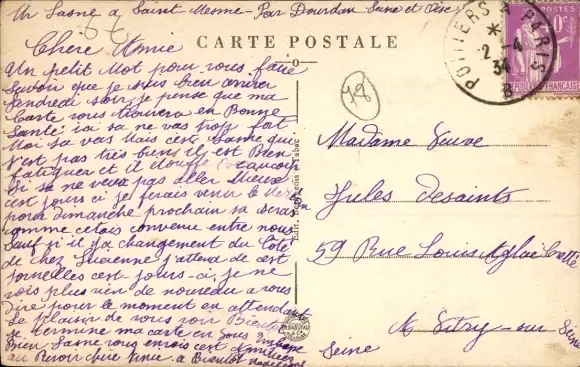 Mr Lasne a Saint Mesme Par Dourdan Seine et Oise
CARTE POSTALE
POITIERS A PARIS
2 -4
34
POSTES
18
Chere Amie
Un petit Mot pour vous faire
Savoir que je suis bien arriver
Vendredi soir je pense que ma
Carte vous trouvera en Bonne
Santé ici sa ne vas trop fort
Moi sa vas Mais cest Lasne qui
n'est pas très bien il est Bien
fatiguer et il étouffe beaucoup
Si sa ne veux pas aller Mieux
cest jours ci je ferais venir le
pour dimanche prochain sa seras
comme cetais convenue entre nous
Sauf si il y a changement du Coté
de chez Suzenne j'attend de cest
nouvelles cest jours-ci, je ne
vois plus rien de nouveau a vous
Dire pour le moment en attendant
Le plaisir de vous voir Bientot
Je termine ma carte en
Bien Lasne vous envois cest Amitiées
au Revoir chère Amie a Bientot Madeleine
Madame Veuve
Jules Desaints
59 Rue Louis Aglaé Cretté
A Vitry-sur Seine
Seine